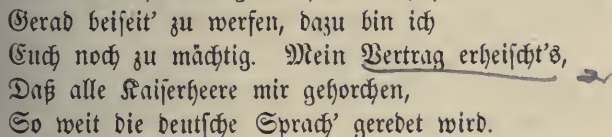 Gerad beiseit' zu werfen, dazu bin ich
Euch noch zu mächtig. Mein Vertrag erheischt's,
Daß alle Kaiserheere mir gehorchen,
So weit die deutsche Sprach' geredet wird.